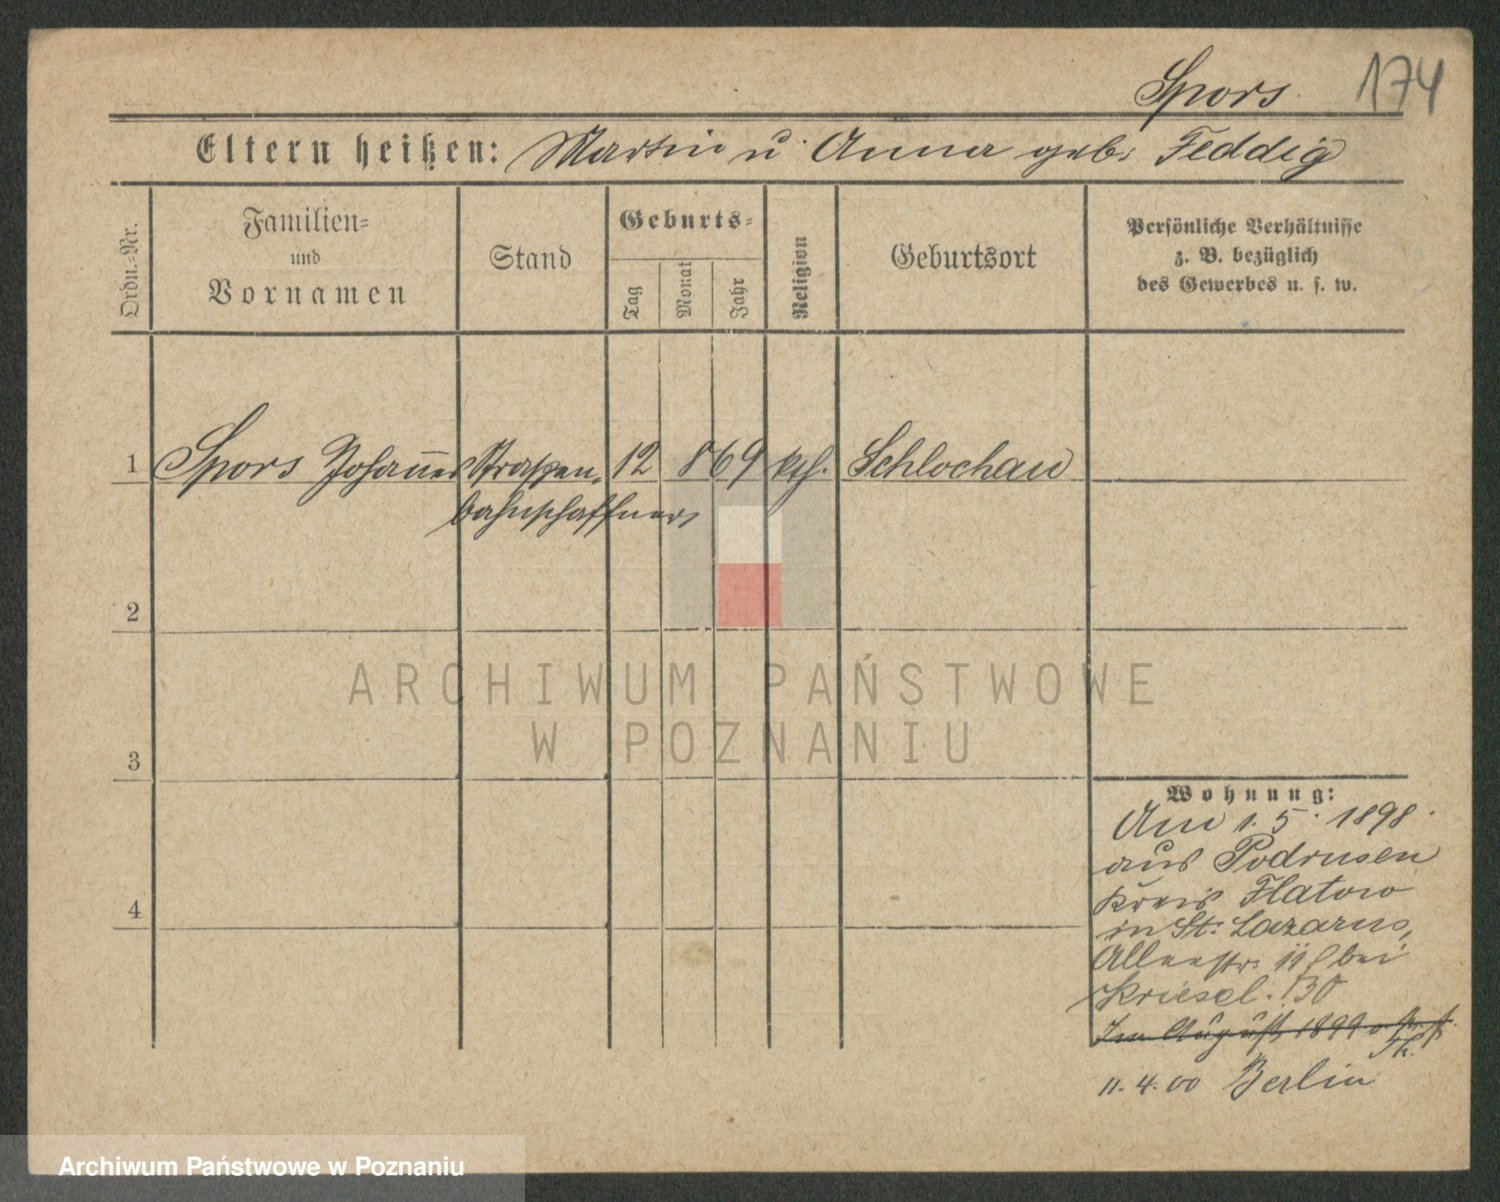 Spors 174
Eltern heißen: Martin u Anna geb. Feddig
Ordn.-Nr.
Familien- und Vornamen
Stand
Geburts-
Tag
Monat
Jahr
Religion
Geburtsort
Persönliche Verhältnisse
z. B. bezüglich
des Gewerbes u. s. w.
1 Spors Johannes Straßen- 12 8 69 kth. Schlochau
bahnschaffner
2
3
4
Wohnung:
Am 1. 5. 1898
aus Podrusen
Kreis Flatow
in St. Lazarus,
Alleestr. 11 bei
Kriesel.
Im August 1899
11. 4. 00 Berlin
ARCHIWUM PAŃSTWOWE
W POZNANIU
Archiwum Państwowe w Poznaniu